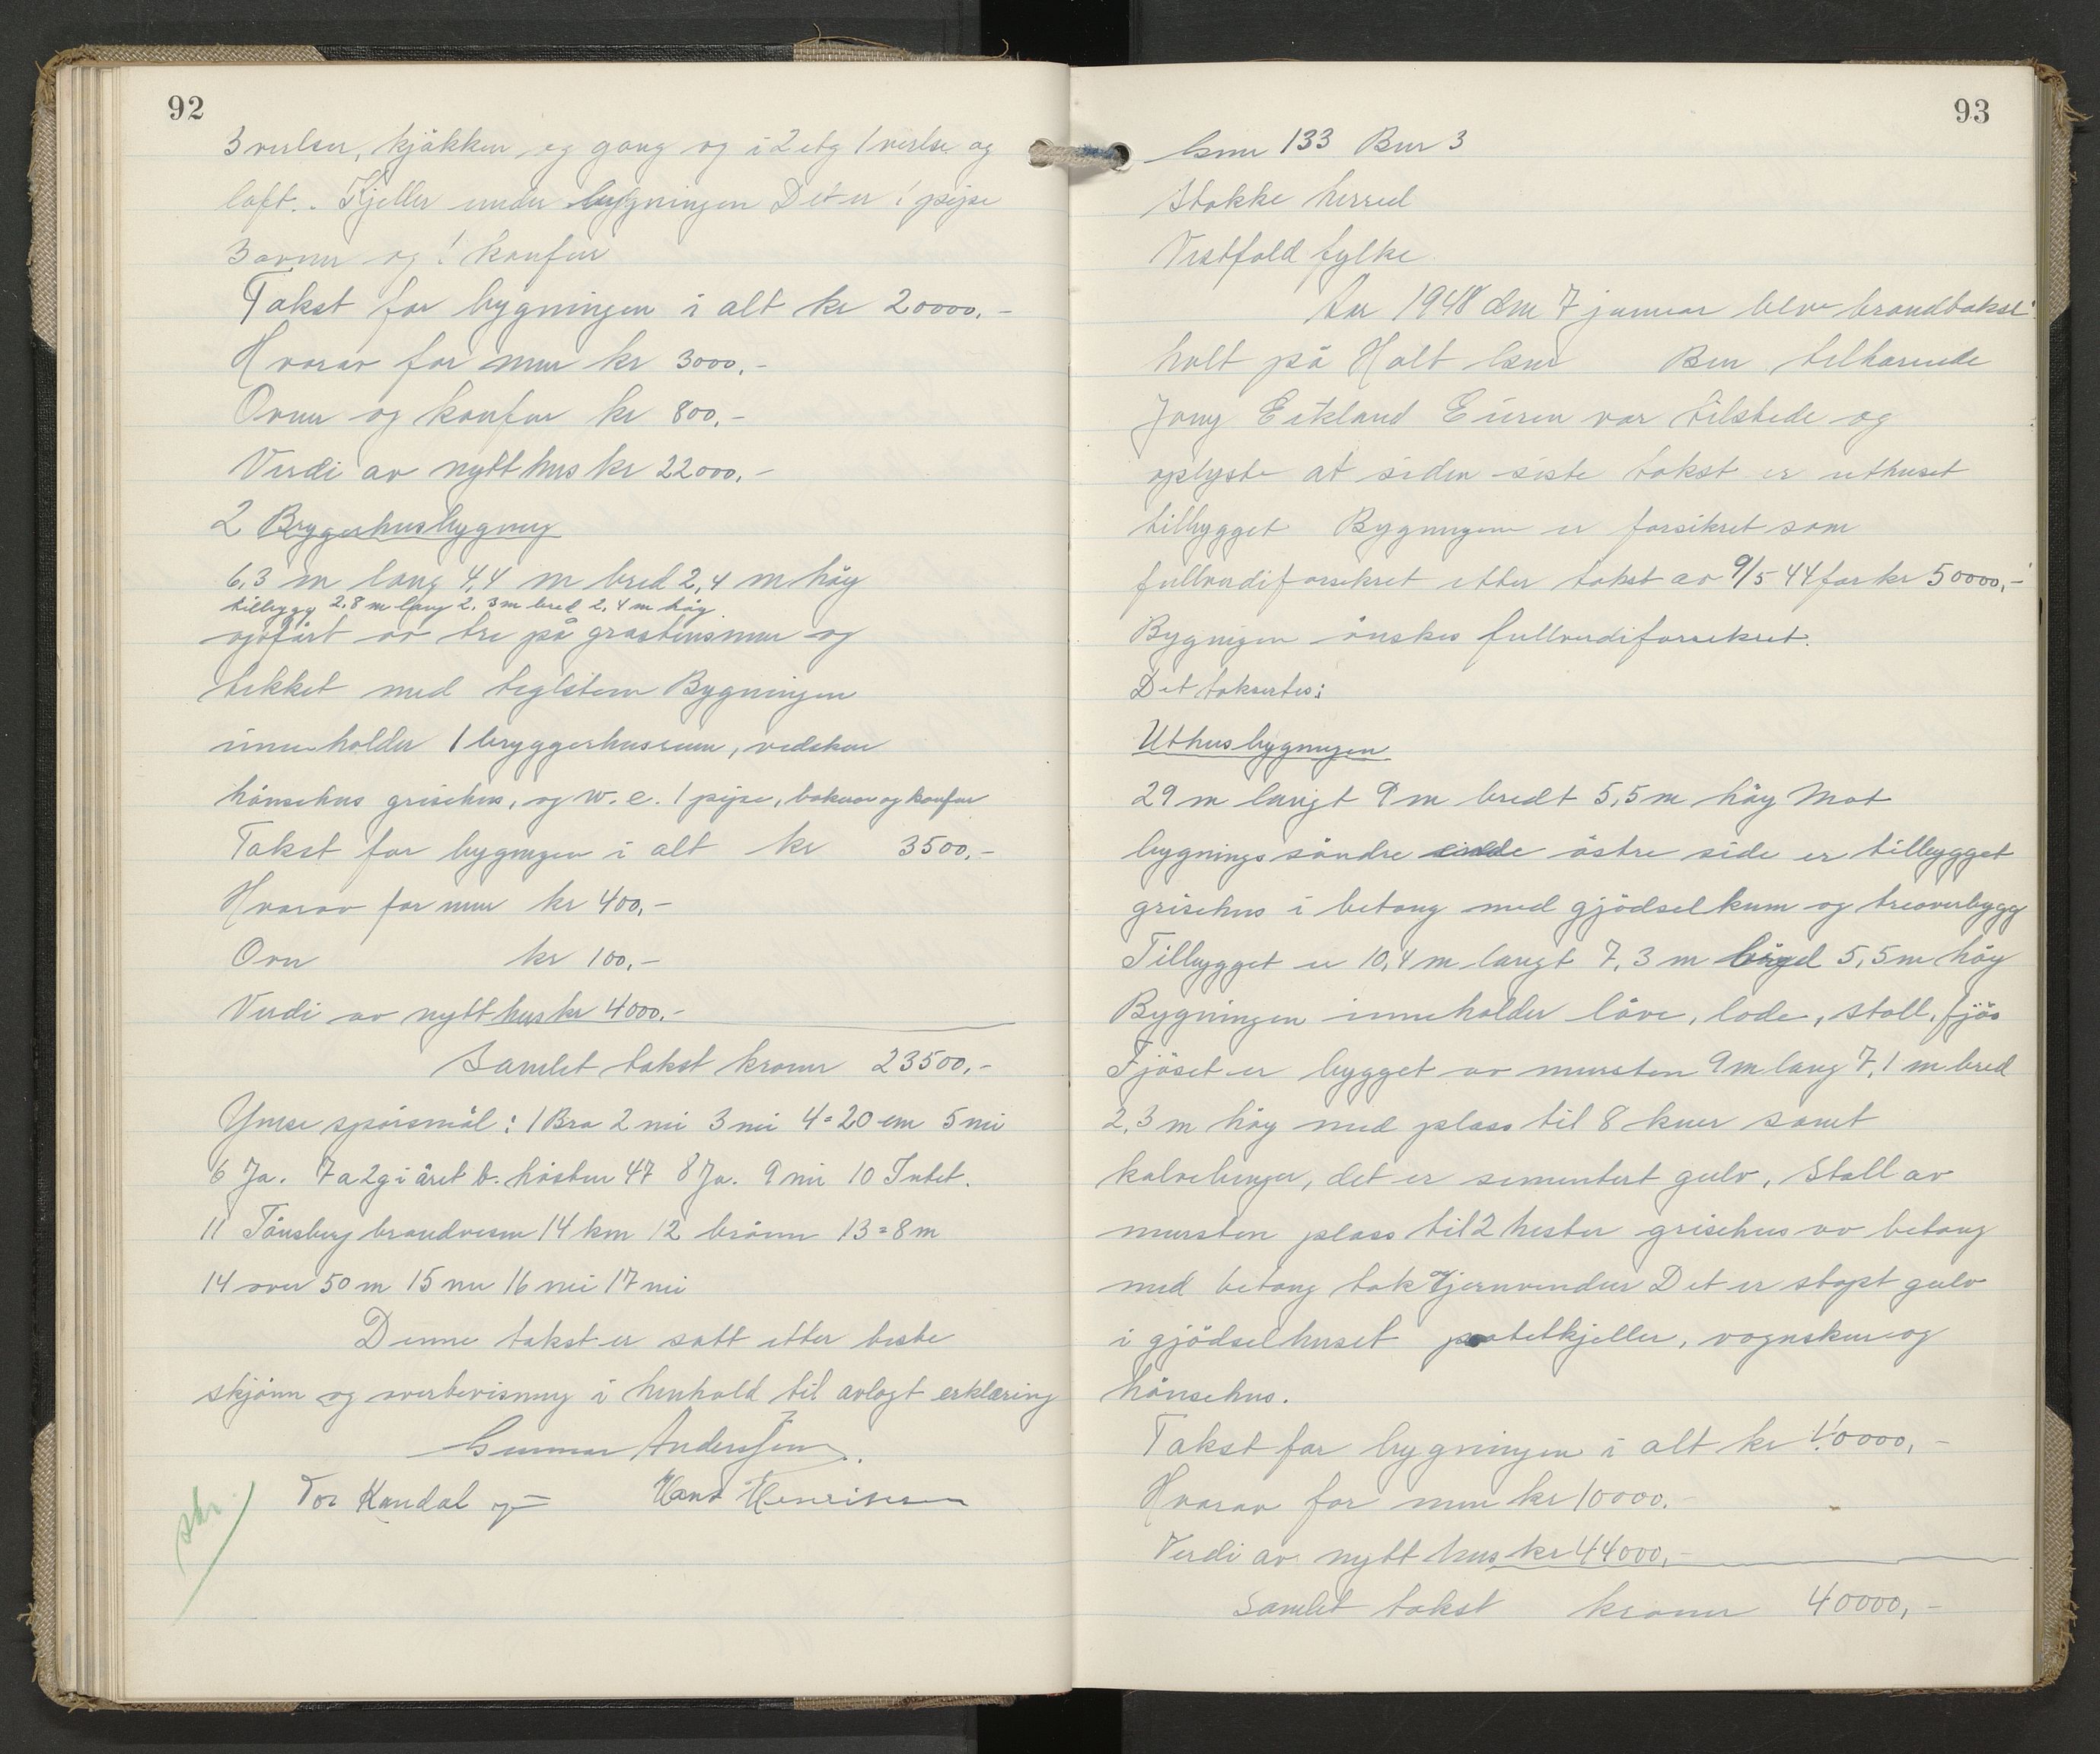 92
3 verlser, kjökken og gang og i 2 etg 1 verlse og
loft. Kjeller under bygningen Det er 1 pipe
3 ovner og 1 komfur
Takst for bygningen i alt kr 20000,-
Hvorav for mur kr 3000,-
Ovner og komfur kr 800,-
Verdi av nytt hus kr 22000,-
2 Bryggerhusbygning
6,3 m lang 4,4 m bred 2,4 m höy
tilbygg 2,8 m lang 2,3 m bred 2,4 m höy
opfört av tre på grastensmur og
tekket med teglsten Bygningen
inneholder 1 bryggerhusrum, vedskur
hönsehus grisehus, og w.c. 1 pipe, bakerov og komfur
Takst for bygningen i alt kr 3500,-
Hvorav for mur kr 400,-
Ovn kr 100,-
Verdi av nytt hus kr 4000,-
Samlet takst kroner 23500,-
Ymse spörsmål: 1 Bra 2 nei 3 nei 4=20 cm 5 nei
6 Ja. 7 a 2 g i året b. hösten 47 8 Ja. 9 nei 10 Intet.
11 Tönsberg brandvesen 14 km 12 brönn 13=8 m
14 over 50 m 15 nei 16 nei 17 nei
Denne takst er satt etter beste
skjönn og overbevisning i henhold til avlagt erklæring
Gunnar Anderssen
Tor Kandal Hans Henriksen
skr.
93
Gnr 133 Bnr 3
Stokke herred
Vestfold fylke
Aar 1948 den 7 januar blev brandtakst
holt på Holt Gnr Bnr tilhørende
Jony Eikland Eieren var tilstede og
oplyste at siden siste takst er uthuset
tilbygget Bygningen er forsikret som
fullverdiforsikret etter takst av 9/5 44 for kr 50000,-
Bygnigen önskes fullverdiforsikret.
Det taksertes:
Uthusbygningen
29 m langt 9 m bredt 5,5 m höy Mot
bygnings söndre östre side er tilbygget
grisehus i betong med gjödselkum og treoverbygg
Tilbygget er 10,4 m langt 7,3 m bred 5,5 m höy
Bygningen inneholder låve, lode, stall, fjös
Fjöset er bygget av mursten 9 m lang 7,1 m bred
2,3 m höy med plass til 8 kuer samt
kalvebinger, det er sementert gulv, Stall av
mursten plass til 2 hester grisehus av betong
med betong tak Hjernvinduer Det er stöpt gulv
i gjödselhuset potetkjeller, vognskur og
hönsehus.
Takst for bygningen i alt kr 40000,-
Hvorav for mur kr 10000.-
Verdi av nytt hus kr 44000,-
Samlet takst kroner 40000,-